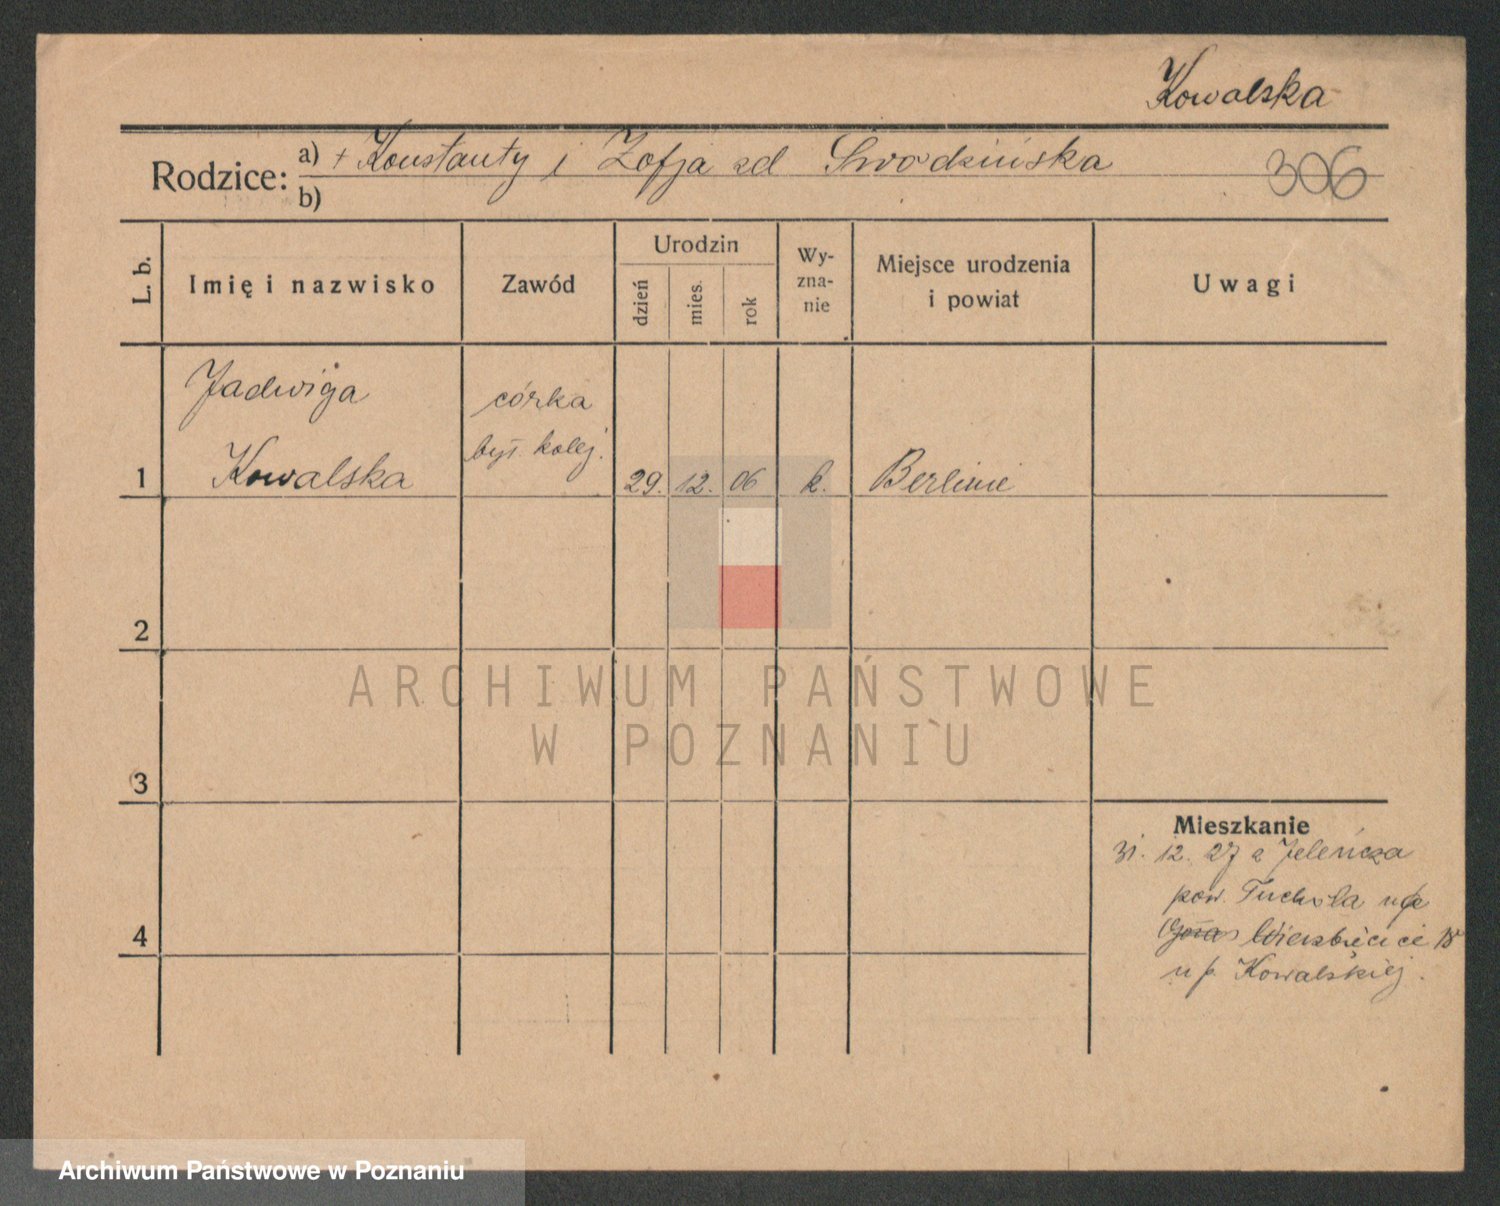 Kowalska
Rodzice: a) + Konstanty i Zofja zd Swodzińska
b)
306
L. b.
Imię i nazwisko
Zawód
Urodzin
dzień
mies.
rok
Wy-
zna-
nie
Miejsce urodzenia
i powiat
Uwagi
Jadwiga
córka
był. kolej.
1 Kowalska 29. 12. 06 k. Berlinie
2
3
4
Mieszkanie
31. 12. 27 z Jeleńcza
pow. Tuchola
Wierzbięcice 18
u p. Kowalskiej.
ARCHIWUM PAŃSTWOWE
W POZNANIU
Archiwum Państwowe w Poznaniu